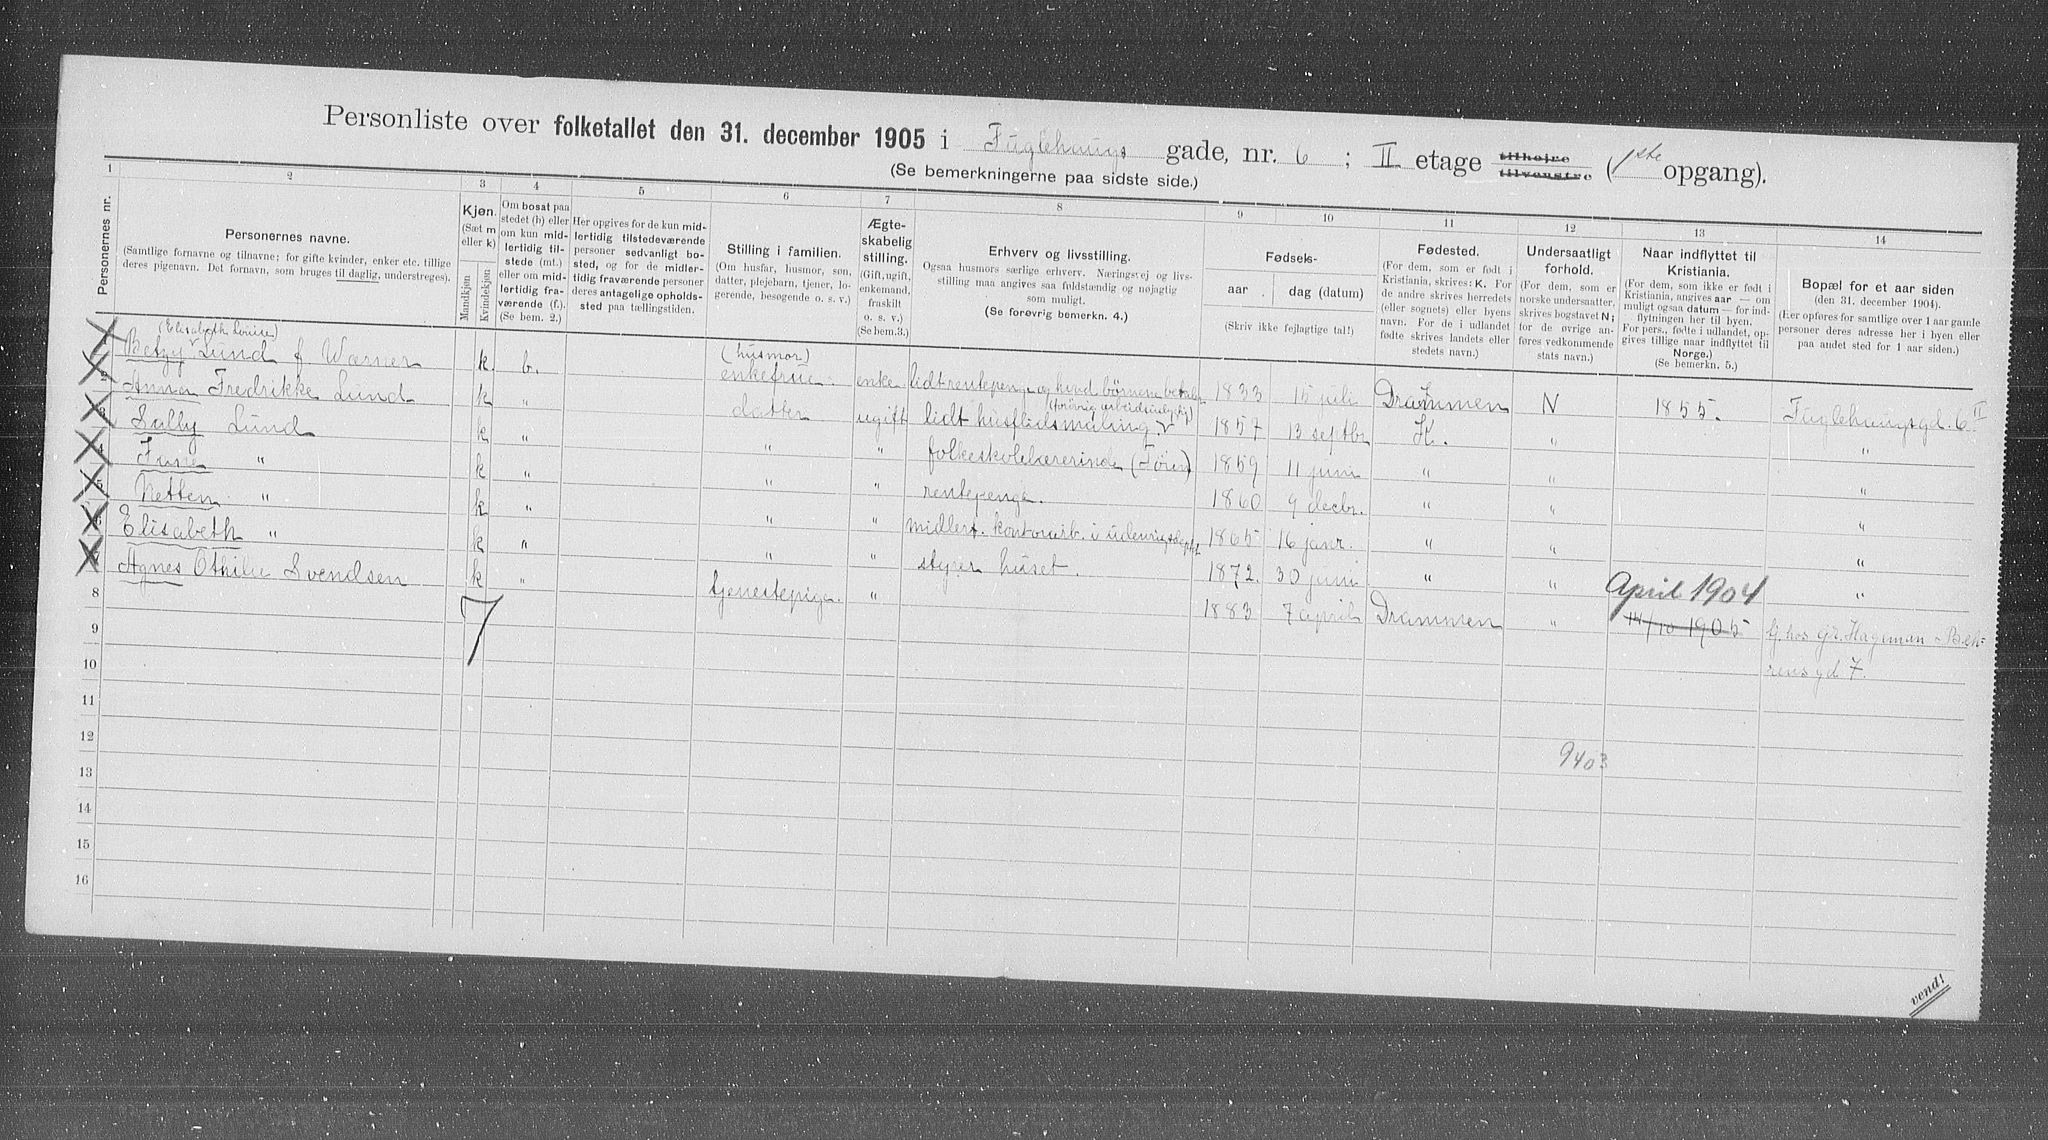 Personliste over folketallet den 31. december 1905 i Fuglehaugs gade, nr. 6 ; II etage tilhøjre tilvenstre (1ste opgang).
(Se bemerkningerne paa sidste side.)
1 2 3 4 5 6 7 8 9 10 11 12 13 14
Personernes nr.
Personernes navne.
(Samtlige fornavne og tilnavne; for gifte kvinder, enker etc. tillige
deres pigenavn. Det fornavn, som bruges til daglig, understreges).
Kjøn.
(Sæt m
eller k)
Mandkjøn
Kvindekjøn
Om bosat paa
stedet (b) eller
om kun mid-
lertidig til-
stede (mt.)
eller om mid-
lertidig fra-
værende (f.).
(Se bem. 2.)
Her opgives for de kun mid-
lertidig tilstedeværende
personer sedvanlig bo-
sted, og for de midler-
tidig fraværende personer
deres antagelige opholds-
sted paa tællingstiden.
Stilling i familien.
(Om husfar, husmor, søn,
datter, plejebarn, tjener, lo-
gerende, besøgende o. s. v.)
Ægte-
skabelig
stilling.
(Gift, ugift,
enkemand,
fraskilt
o. s. v.)
(Se bem. 3.)
Erhverv og livsstilling.
Ogsaa husmors særlige erhverv. Næringsvej og livs-
stilling maa angives saa fuldstændig og nøjagtig
som muligt.
(Se forøvrig bemerkn. 4.)
Fødsels-
aar .
dag (datum)
(Skriv ikke fejlagtige tal!)
Fødested.
(For dem, som er født i
Kristiania, skrives: K. For
de andre skrives herredets
(eller sognets) eller byens
navn. For de i udlandet
fødte skrives landets eller
stedets navn.)
Undersaatligt
forhold.
(For dem, som er
norske undersaatter,
skrives bogstavet N;
for de øvrige an-
føres vedkommende
stats navn.)
Naar indflyttet til
Kristiania.
(For dem, som ikke er født i
Kristiania, angives aar — om
muligt ogsaa datum — for ind-
flytningen her til byen.
For pers., fødte i udlandet, op-
gives tillige naar indflyttet til
Norge.)
(Se bemerkn. 5.)
Bopæl for et aar siden
(den 31. december 1904).
(Her opføres for samtlige over 1 aar gamle
personer deres adresse her i byen eller
paa andet sted for 1 aar siden.)
(Elisabeth Louise)
1 Betzy Lund f Wærner k. b. (husmor) enkefrue. enke lidt rentepenge og hvad børnene betaler 1833 15 juli Drammen N 1855. Fuglehaugsgd. 6 II
2 Anna Fredrikke Lund k " datter ugift lidt husflidsmaling (forøvrig arbeidsudygtig) 1857 13 septbr K. " "
3 Sally Lund k " " " folkeskolelærerinde (Tøien) 1859 11 juni " " "
4 " k " " " rentepenge. 1860 9 decbr. " " "
5 Netten " k " " " midlert. kontorarb. i udenrigsdept 1865 16 janr. " " "
6 Elisabeth " k " " " styrer huset. 1872. 30 juni " " "
7 Agnes Othilie Svendsen k " tjenestepige. " 1883 7 april Drammen " April 1904 14/10 1905 tj. hos gr. Hageman - Beh-
rensgd 7.
7
8
9
10
11
12
13
14
15
16
9403
vend!